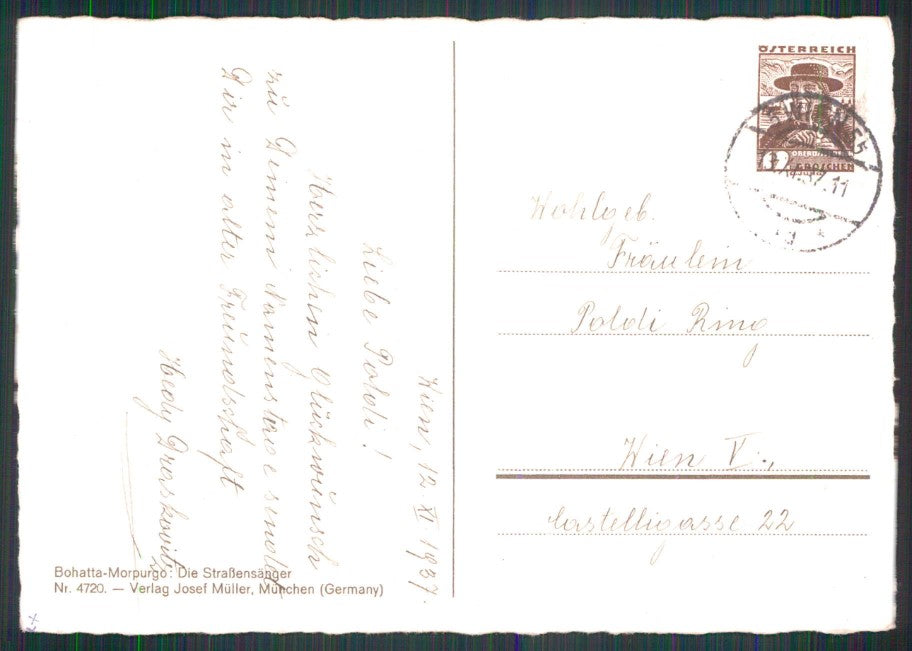 Wien, 12. XI 1937.
Liebe Poldi!
Herzlichen Glückwünsch
zu Deinem Namenstage sendet
Dir in alter Freundschaft
Hedy Draskovits
Bohatta-Morpurgo: Die Straßensänger
Nr. 4720. — Verlag Josef Müller, München (Germany)
ÖSTERREICH
GROSCHEN
WIEN 55
Wohlgeb.
Fräulein
Poldi Ring
Wien V.,
Castelligasse 22